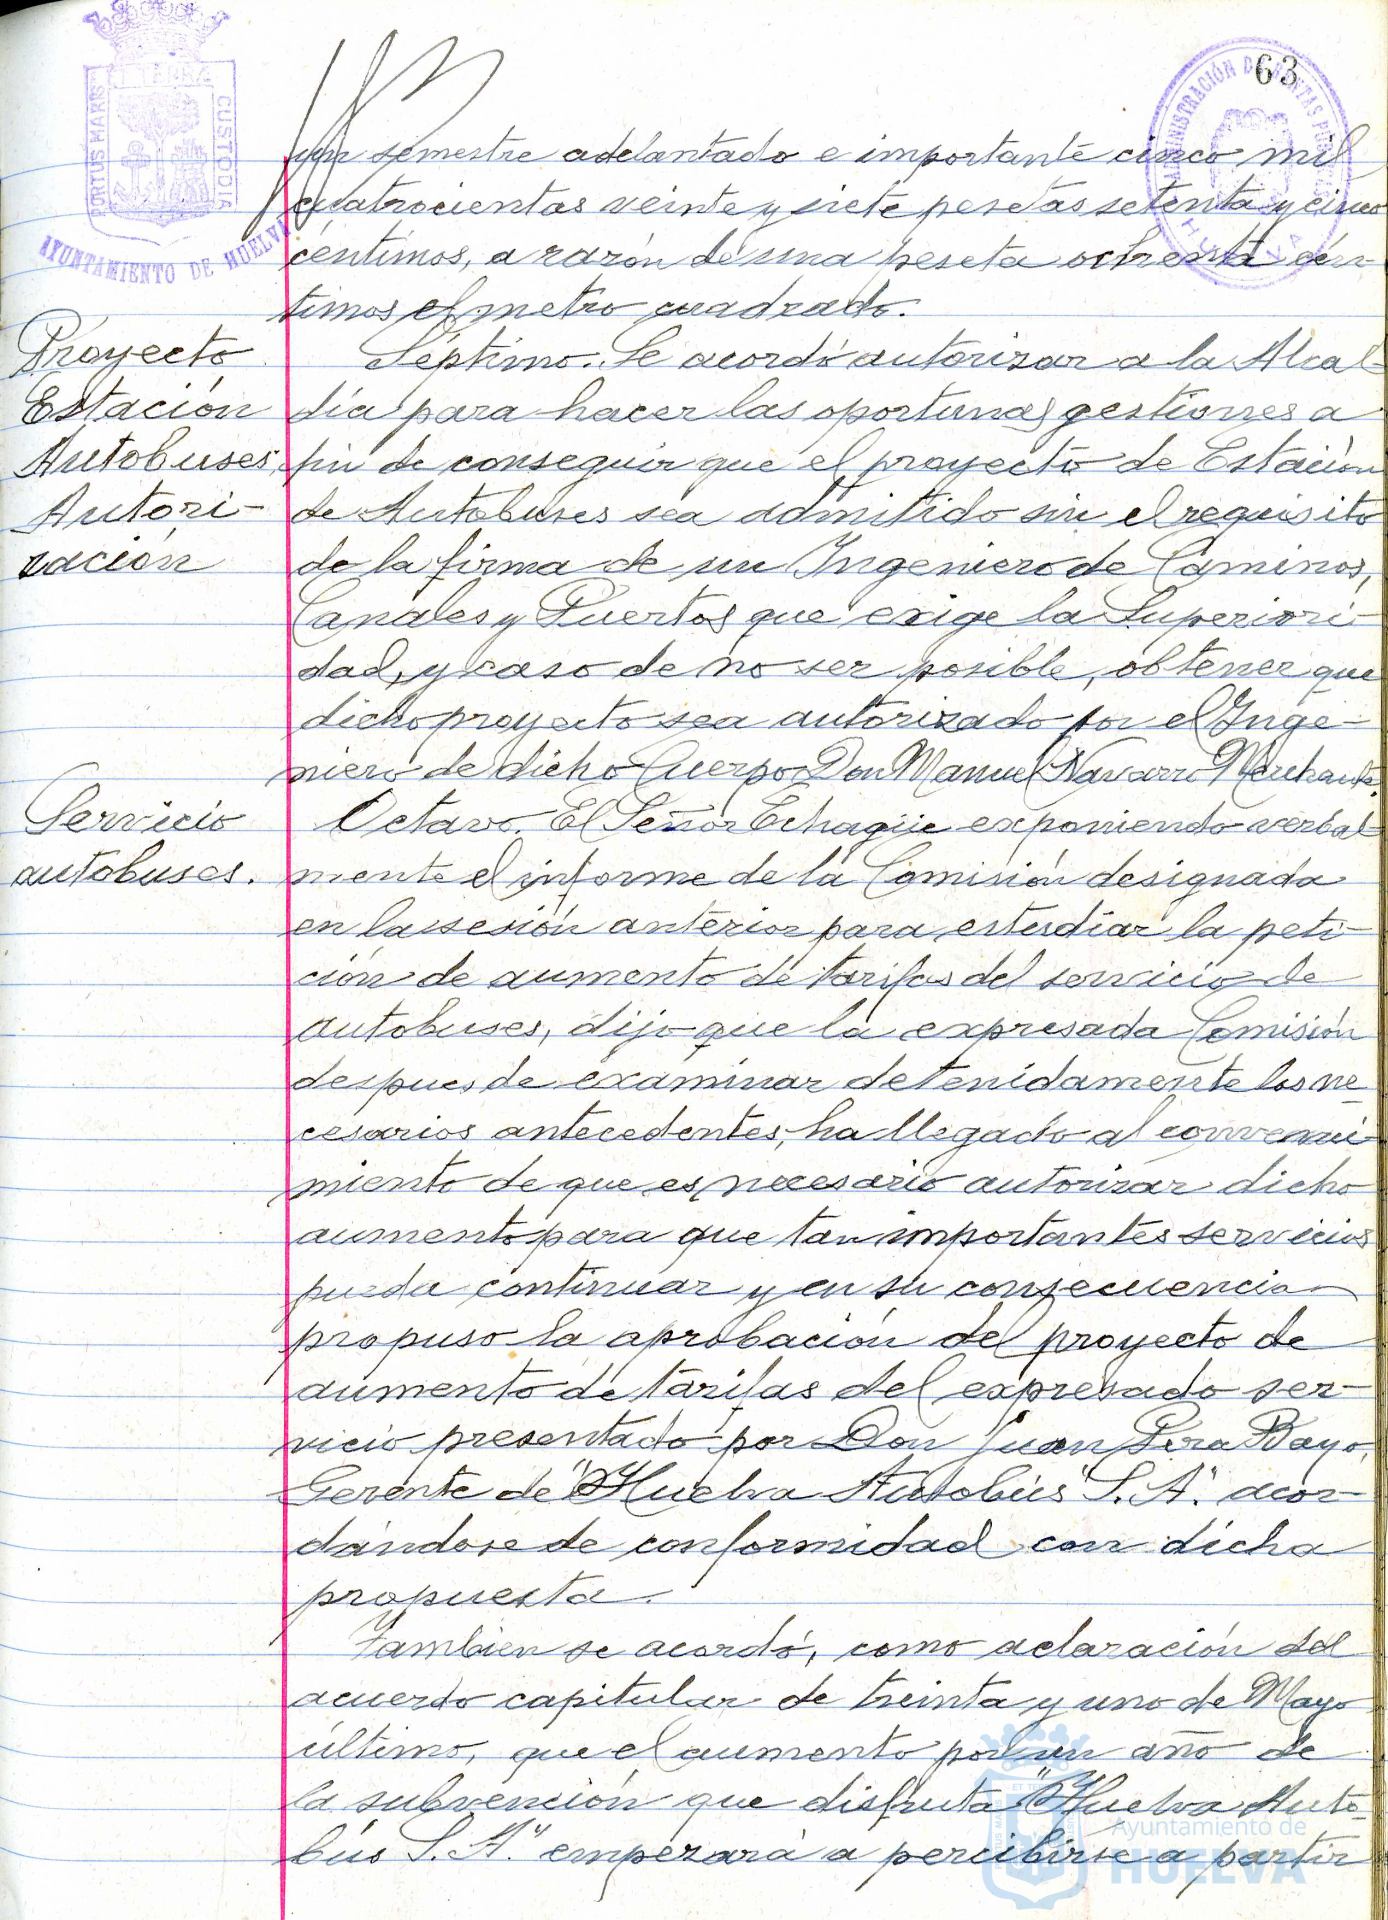 63
PORTUS MARIS ET TERRAE CUSTODIA
AYUNTAMIENTO DE HUELVA
ADMINISTRACIÓN DE RENTAS PÚBLICAS
HUELVA
un semestre adelantado e importante cinco mil
cuatrocientas veinte y siete pesetas setenta y cinco
céntimos, a razón de una peseta ochenta cén-
timos el metro cuadrado.
Proyecto
Estación
Autobuses,
Autori-
zación
Séptimo. Se acordó autorizar a la Alcal-
día para hacer las oportunas gestiones a
fin de conseguir que el proyecto de Estación
de Autobuses sea admitido sin el requisito
de la firma de un Ingeniero de Caminos,
Canales y Puertos que exige la Superiori-
dad, y caso de no ser posible, obtener que
dicho proyecto sea autorizado por el Inge-
niero de dicho Cuerpo Don Manuel Navarro Merchante.
Servicio
autobuses.
Octavo. El Señor Echagüe exponiendo verbal-
mente el informe de la Comisión designada
en la sesión anterior para estudiar la peti-
ción de aumento de tarifas del servicio de
autobuses, dijo que la expresada Comisión
despues de examinar detenidamente los ne-
cesarios antecedentes, ha llegado al convenci-
miento de que es necesario autorizar dicho
aumento para que tan importantes servicios
pueda continuar y en su consecuencia
propuso la aprobación del proyecto de
aumento de tarifas del expresado ser-
vicio presentado por Don Juan Pera Bayo,
Gerente de "Huelva Autobús" S. A." acor-
dándose de conformidad con dicha
propuesta.
Tambien se acordó, como aclaración del
acuerdo capitular de treinta y uno de Mayo
último, que el aumento por un año de
la subvención que disfruta "Huelva Auto-
bús S. A." empezará a percibirse a partir
Ayuntamiento de
HUELVA